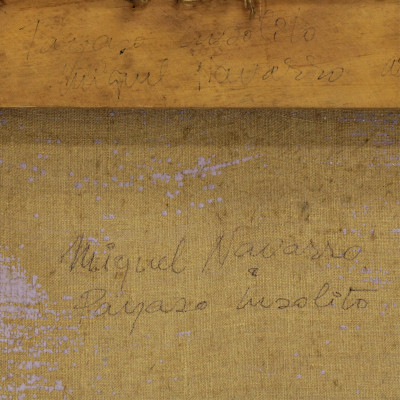 Payaso insolito
Miguel Navarro
Miguel Navarro
Payaso Insolito